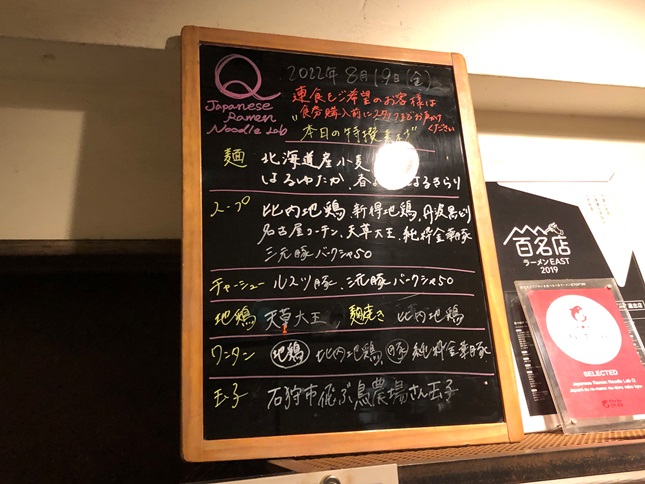 Q
Japanese
Ramen
Noodle Lab
2022年8月19日(金)
連食をご希望のお客様は
食券購入前にスタッフまでお声かけ
ください
"本日の特撰素材"
麺 北海道産小麦
はるゆたか、春 はるきらり
スープ 比内地鶏、新得地鶏、丹波黒どり
名古屋コーチン、天草大王、純粋金華豚
三元豚バークシャ50
チャーシュー ルスツ豚、三元豚バークシャ50
地鶏 天草大王, 麹焼き 比内地鶏
ワンタン 地鶏 比内地鶏, 豚 純粋金華豚
玉子 石狩市飛ぶ鳥農場さん玉子
百名店
ラーメンEAST
2019
SELECTED
Japanese Ramen Noodle Lab Q